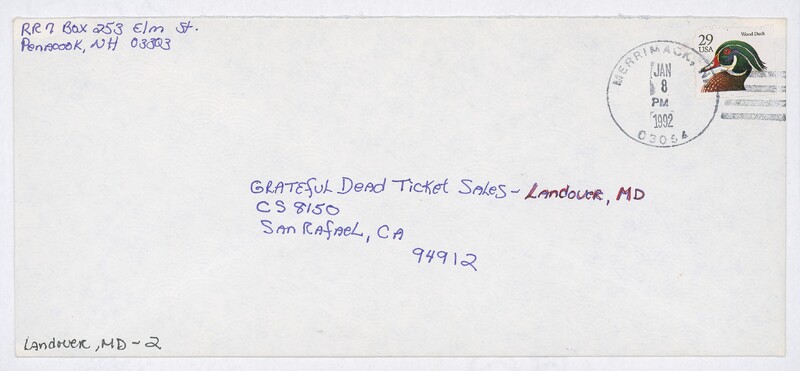 RR7 Box 253 Elm St.
Penacook, NH 03303
29
USA
Wood Duck
MERRIMACK,
JAN
8
PM
1992
03054
GRATEFUL Dead Ticket SALES - Landover, MD
CS 8150
San Rafael, CA
94912
Landover, MD - 2